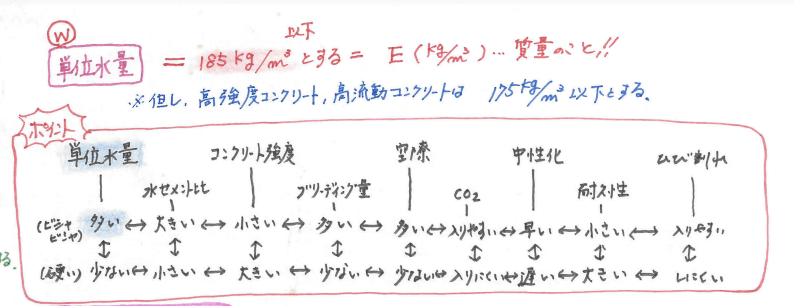 Ⓦ 以下
単位水量 = 185kg/m³とする = E (kg/m³) … 質量のこと!!
※但し、高強度コンクリート, 高流動コンクリートは 175kg/m³以下とする。
ポイント
単位水量 コンクリート強度 空隙 中性化 ひび割れ
水セメント比 ブリーディング量 CO₂ 耐久性
(ビシャビシャ) 多い ↔ 大きい ↔ 小さい ↔ 多い ↔ 多い ↔ 入りやすい ↔ 早い ↔ 小さい ↔ 入りやすい
↕ ↕ ↕ ↕ ↕ ↕ ↕ ↕ ↕
る. (硬い) 少ない ↔ 小さい ↔ 大きい ↔ 少ない ↔ 少ない ↔ 入りにくい ↔ 遅い ↔ 大きい ↔ しにくい